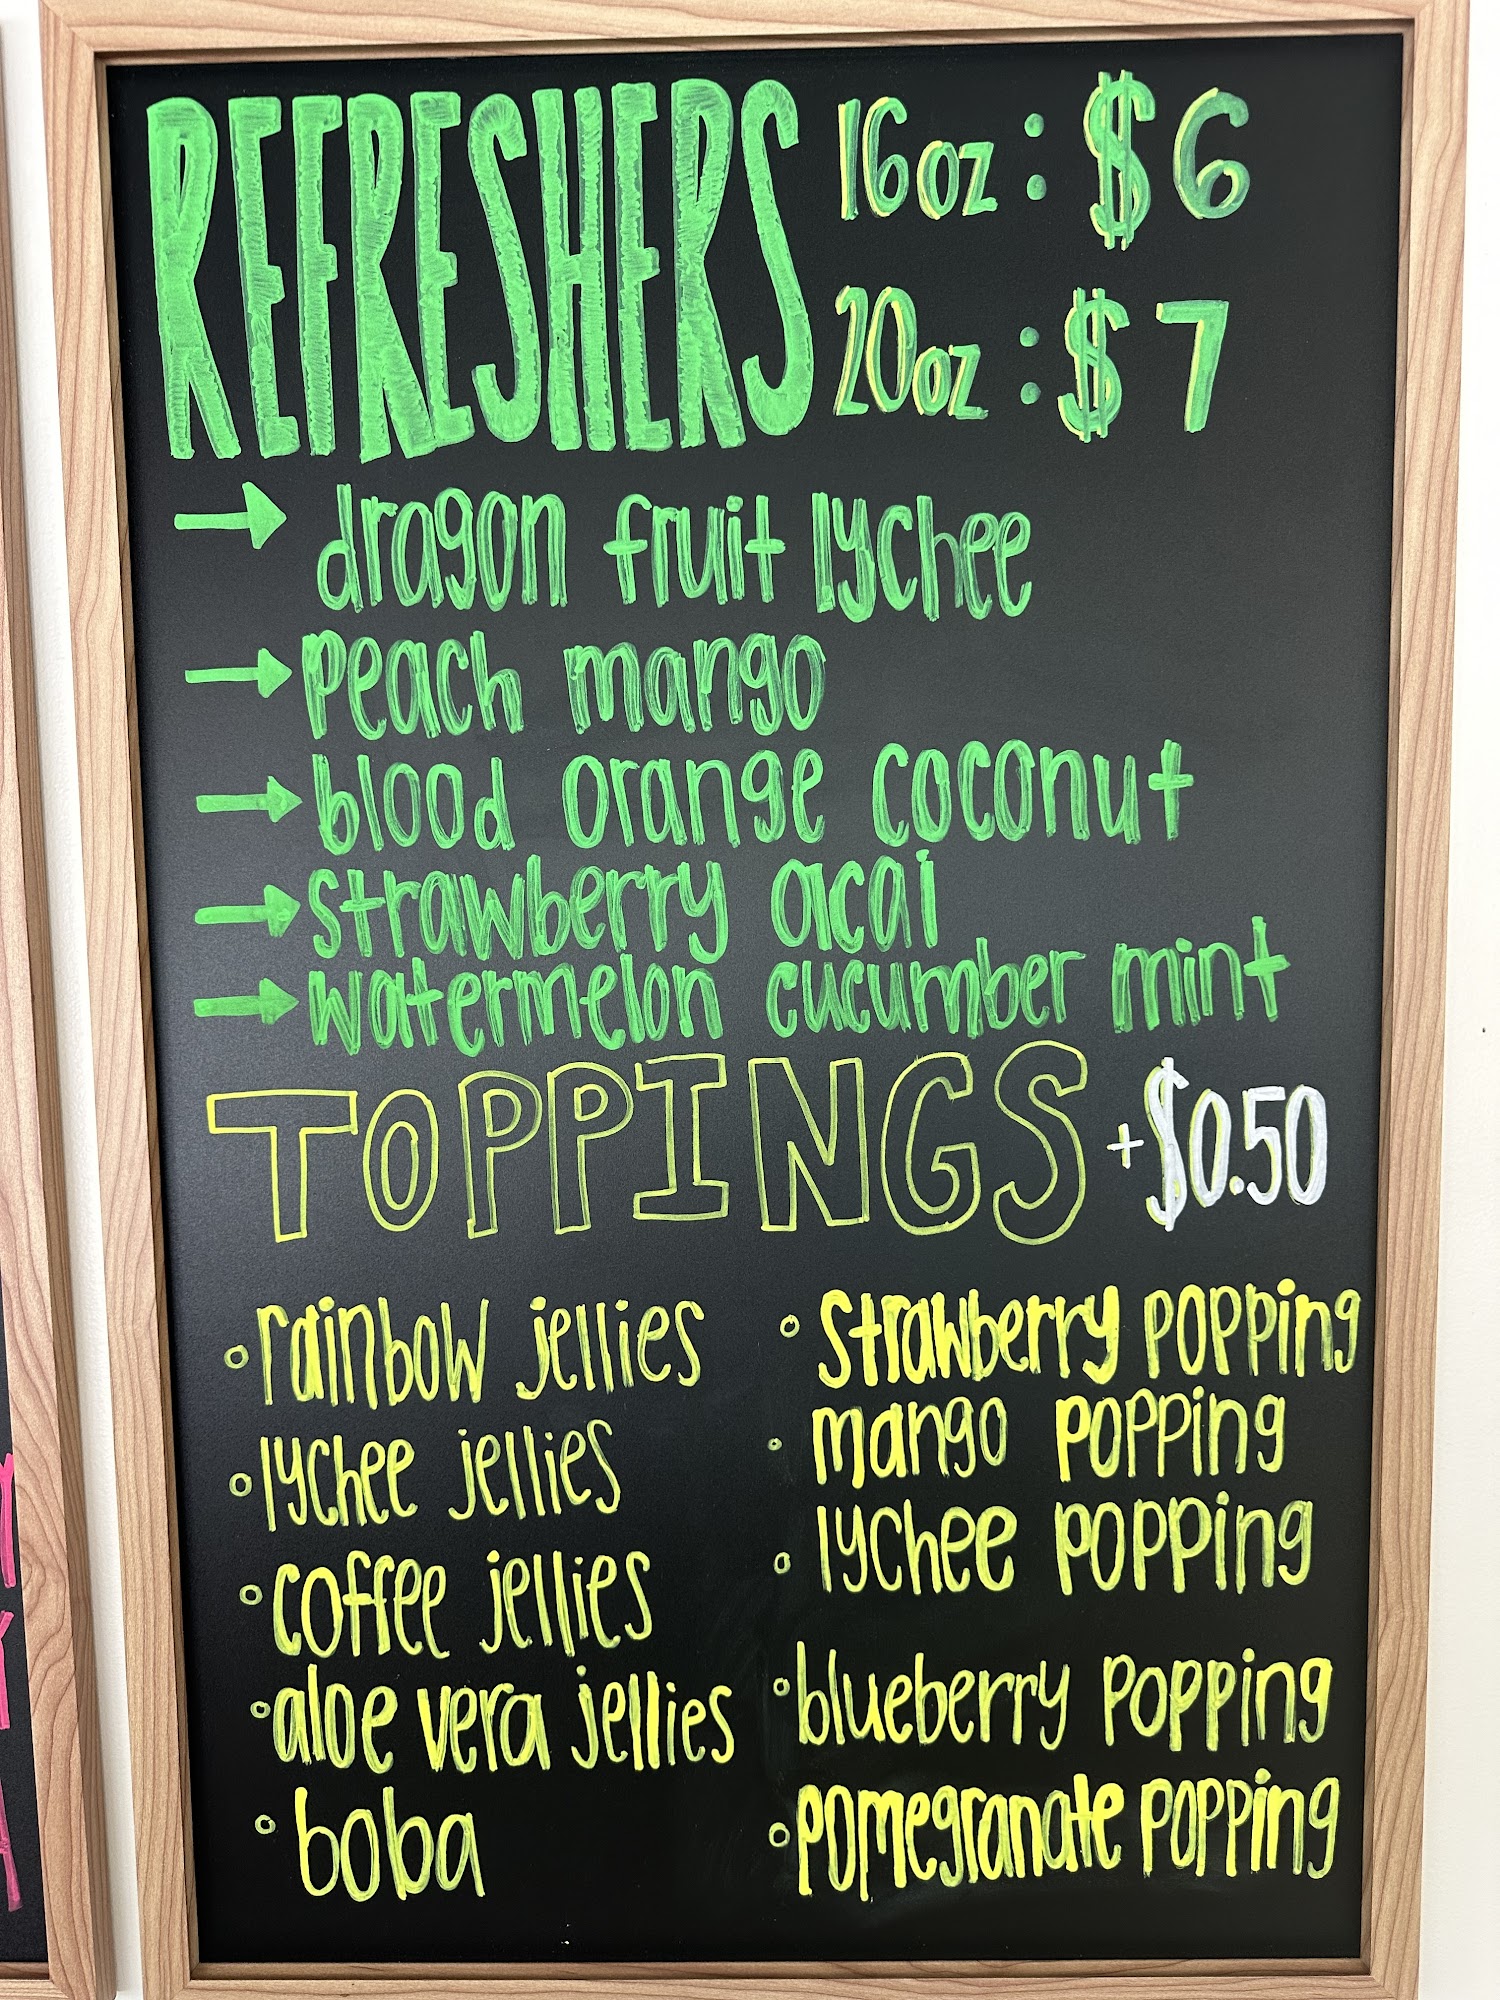 REFRESHERS 16oz : $6
20oz : $7
→ dragon fruit lychee
→ peach mango
→ blood orange coconut
→ strawberry acai
→ watermelon cucumber mint
TOPPINGS +$0.50
◦ rainbow jellies
◦ lychee jellies
◦ coffee jellies
◦ aloe vera jellies
◦ boba
◦ strawberry popping
◦ mango popping
◦ lychee popping
◦ blueberry popping
◦ pomegranate popping